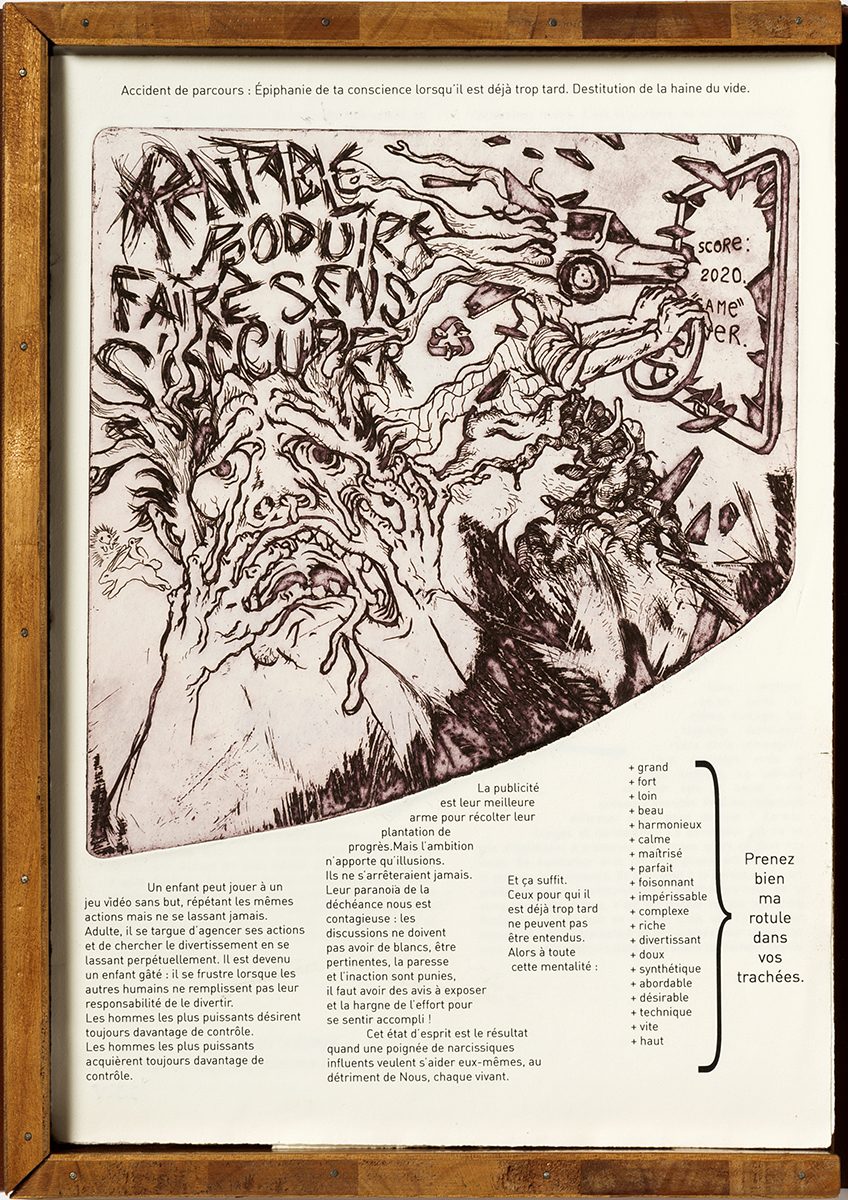 Accident de parcours : Épiphanie de ta conscience lorsqu'il est déjà trop tard. Destitution de la haine du vide.
RENTABLE
PRODUIRE
FAIRE SENS
S'OCCUPER
SCORE:
2020.
La publicité
est leur meilleure
arme pour récolter leur
plantation de
progrès.Mais l'ambition
n'apporte qu'illusions.
Ils ne s'arrêteraient jamais.
Leur paranoïa de la
déchéance nous est
contagieuse : les
discussions ne doivent
pas avoir de blancs, être
pertinentes, la paresse
et l'inaction sont punies,
il faut avoir des avis à exposer
et la hargne de l'effort pour
se sentir accompli !
Cet état d'esprit est le résultat
quand une poignée de narcissiques
influents veulent s'aider eux-mêmes, au
détriment de Nous, chaque vivant.
Un enfant peut jouer à un
jeu vidéo sans but, répétant les mêmes
actions mais ne se lassant jamais.
Adulte, il se targue d'agencer ses actions
et de chercher le divertissement en se
lassant perpétuellement. Il est devenu
un enfant gâté : il se frustre lorsque les
autres humains ne remplissent pas leur
responsabilité de le divertir.
Les hommes les plus puissants désirent
toujours davantage de contrôle.
Les hommes les plus puissants
acquièrent toujours davantage de
contrôle.
Et ça suffit.
Ceux pour qui il
est déjà trop tard
ne peuvent pas
être entendus.
Alors à toute
cette mentalité :
+ grand
+ fort
+ loin
+ beau
+ harmonieux
+ calme
+ maîtrisé
+ parfait
+ foisonnant
+ impérissable
+ complexe
+ riche
+ divertissant
+ doux
+ synthétique
+ abordable
+ désirable
+ technique
+ vite
+ haut
Prenez
bien
ma
rotule
dans
vos
trachées.